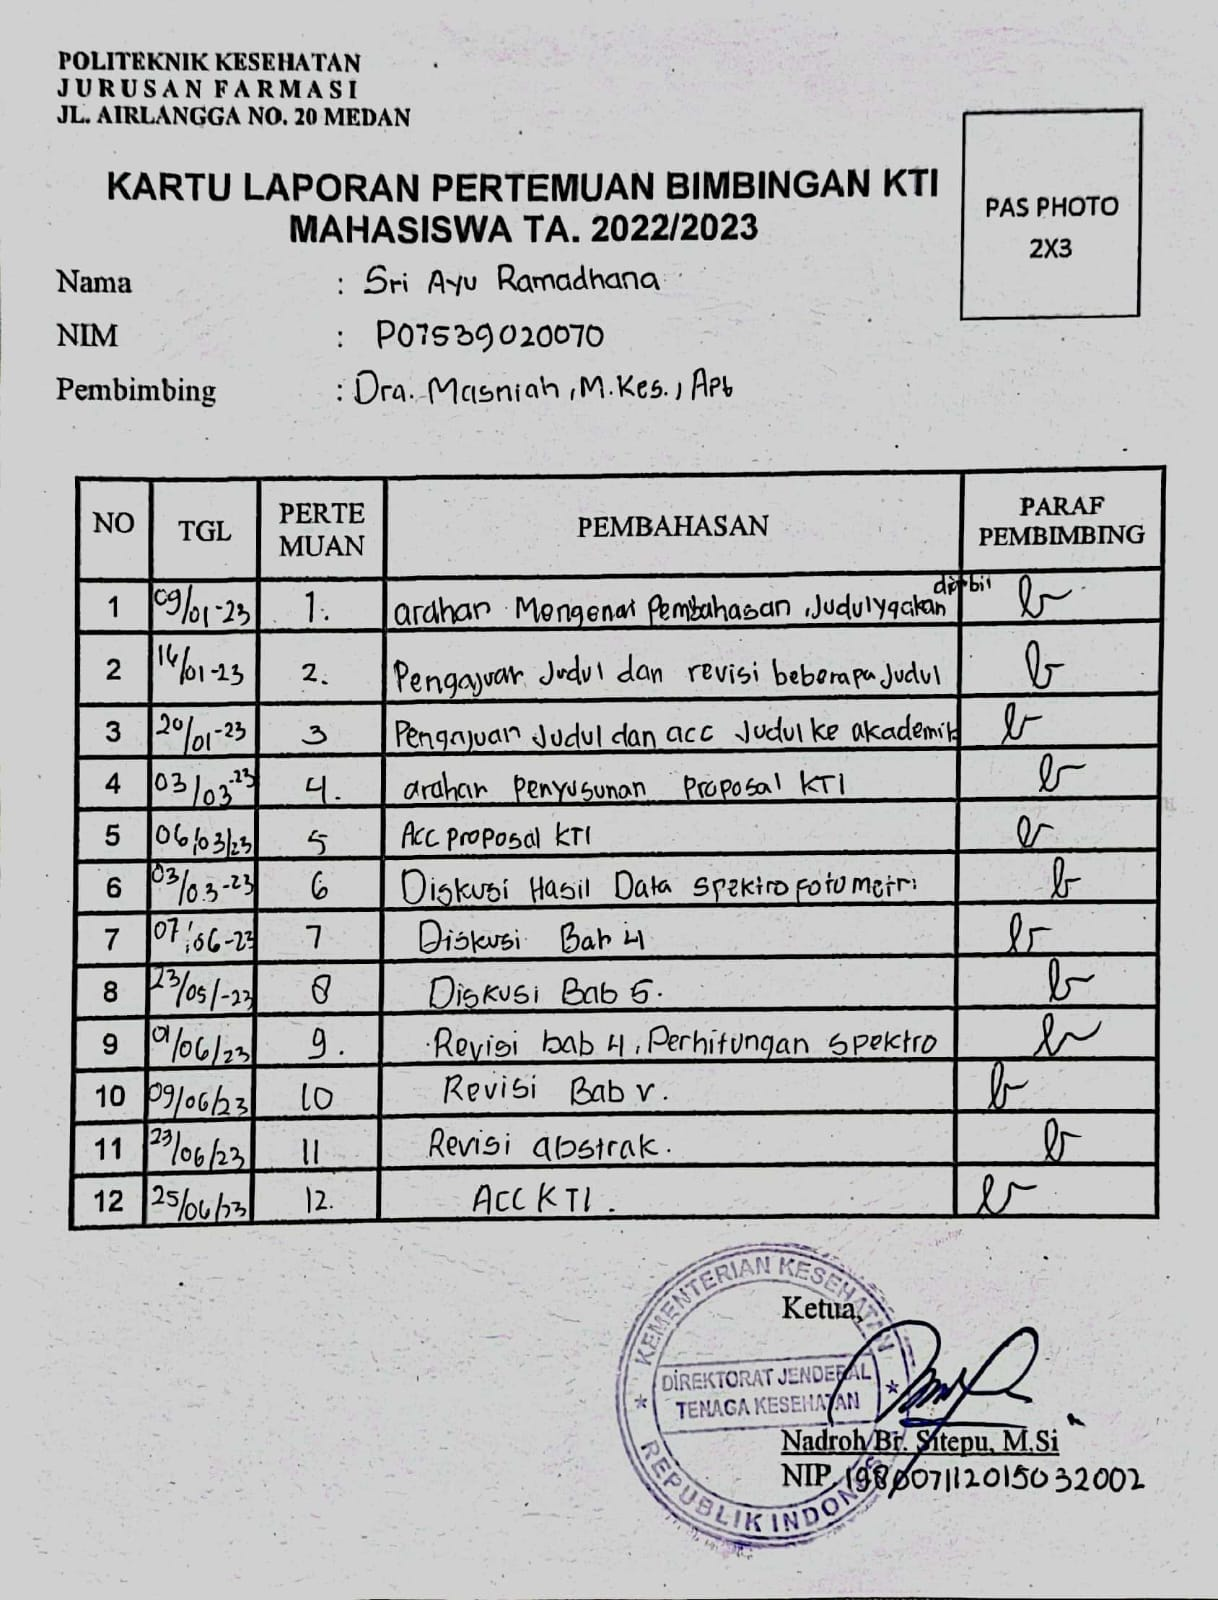 POLITEKNIK KESEHATAN
JURUSAN FARMASI
JL. AIRLANGGA NO. 20 MEDAN
KARTU LAPORAN PERTEMUAN BIMBINGAN KTI
MAHASISWA TA. 2022/2023
PAS PHOTO
2X3
Nama : Sri Ayu Ramadhana
NIM : P07539020070
Pembimbing : Dra. Masniah, M.Kes., Apt
NO TGL PERTE MUAN PEMBAHASAN PARAF PEMBIMBING
1 09/01-23 1. arahan Mengenai Pembahasan Judul yg akan
2 16/01-23 2. Pengajuan Judul dan revisi beberapa Judul
3 20/01-23 3 Pengajuan Judul dan acc Judul ke akademik
4 03/03-23 4. arahan Penyusunan Proposal KTI
5 06/03/23 5 Acc Proposal KTI
6 03/03-23 6 Diskusi Hasil Data Spektrofotometri
7 07/06-23 7 Diskusi Bab 4
8 23/05/-23 8 Diskusi Bab 5.
9 01/06/23 9. Revisi bab 4, Perhitungan Spektro
10 09/06/23 10 Revisi Bab V.
11 23/06/23 11 Revisi abstrak.
12 25/06/23 12. ACC KTI.
KEMENTERIAN KESEHATAN
DIREKTORAT JENDERAL
TENAGA KESEHATAN
REPUBLIK INDONESIA
Ketua,
Nadroh Br. Sitepu, M.Si
NIP. 198007112015032002